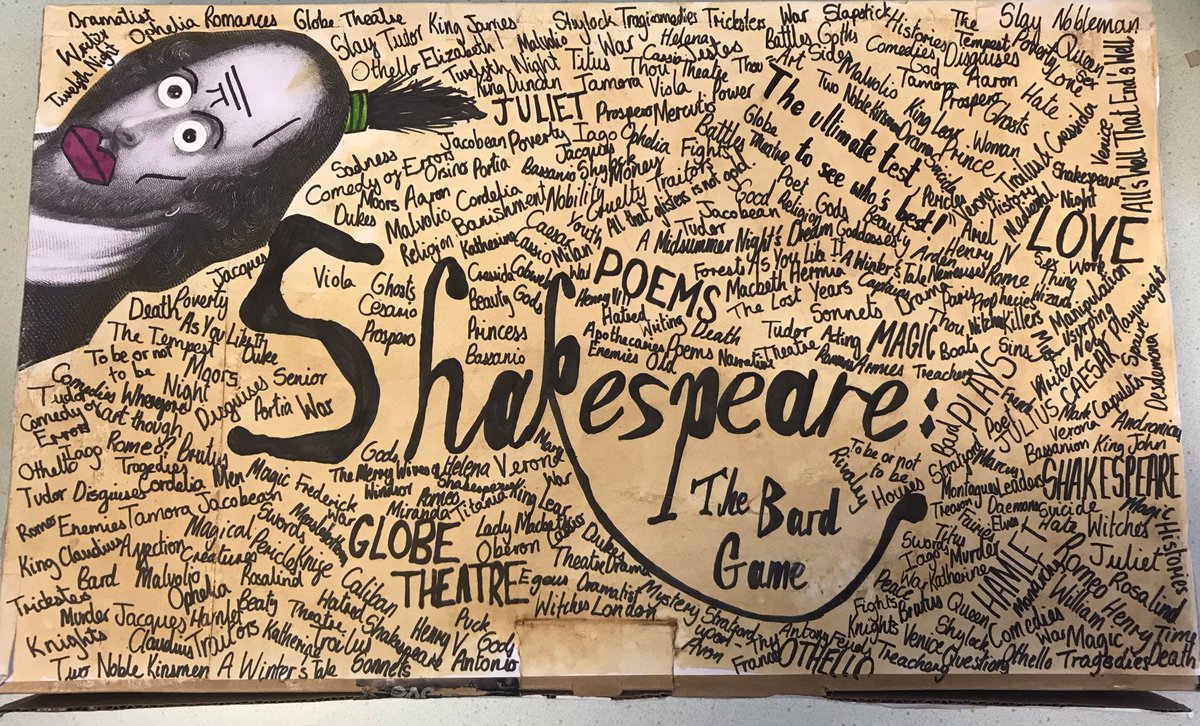 Dramatist
Writer
Twelfth Night
Ophelia Romances Globe Theatre
Slay Tudor King James
Othello Elizabeth I Malvolio Titus War Cassio Jestes
Twelfth Night Thou Theatre Thou
King Duncan Tamora Viola
JULIET Prospero Mercutio Power
Shylock Tragicomedies Tricksters War Slapstick Histories The Slay Nobleman
Helena Battles Goths Comedies Disguises Tempest Poverty Queen
Art Sides God Love Sex
Malvolio Tamora Aaron Hate
Two Noble Kinsmen King Lear Prospero Ghosts
Drama Prince Woman Cressida
Suicide Troilus Venice
All's Well That End's Well
The ultimate test,
to see who's best!
Globe
Theatre
Battles
Jacobean Poverty Iago Ophelia Fights
Sadness
Comedy of Errors
Orsino Portia Bassanio Shylock Money
Jacques
Moors Aaron
Dukes Malvolio Cordelia Nobility Cruelty Traitors
Banishment
Religion Katherine Caesar Youth All that glisters is not gold
Cassio Milan
Tudor Jacobean Good Religion
Poet Gods Beauty Pericles Verona History
A Midsummer Night's Dream Goddesses Arden Henry IV Ariel Medieval Night
Shakespeare
LOVE
Forest As You Like It A Winter's Tale Nemeses Rome Thing Sex Work
Macbeth Hermia Captures Prophecies Wizard Manipulation
The Lost Years Drama Paris Killers Usurping
Sonnets Thou Witches Sins Playwright
POEMS
Henry VI
Hatred Writing Death Tudor Acting MAGIC Boats
Apothecaries Poems Narrative Theatre Romans Armies Treachery
Enemies Old
Jacques
Viola Ghosts Cressida War
Cesario Beauty Gods
Prospero Princess
Bassanio
Death Poverty
The Tempest As You Like It
To be or not Moors Duke
to be Night
Comedies Wherefore Disguises Senior
Tudor art though Portia War
Comedy of
Errors
Romeo? Brutus
Othello Iago
Shakespeare:
The Bard
Game
PLAYS
Writer
JULIUS CAESAR
Bard Poet Mark Capulets Spear Desdemona
Verona Andronicus
Stratford Bassanion King John
Marcus
Montagues Leaders SHAKESPEARE
To be or not
to be
Rivalry
Houses
Treason Daemons Suicide Magic
Fairies Elves Hate Witches Histories
Swords Titus HAMLET
Iago Murder Romeo Juliet
War Katherine Rosalind
Peace
Fights Brutus Queen Monarchy William Henry
Knights Venice Shylock Comedies War Magic Time
Treachery Questions Othello Tragedies Death
Tragedies
Tudor Disguises Cordelia Men Magic Frederick
Romeo Enemies Tamora Jacobean Swords War
King Claudius Affection Magical Pericles Knife
Bard Malvolio Creatures
Tricksters Ophelia Rosalind Caliban
Murder Jacques Hamlet Beaty Theatre Hatred
Knights Claudius Traitors Katherina Troilus Shakespeare Henry V Gods
Two Noble Kinsmen A Winter's Tale Sonnets Antonio
Gods
The Merry Wives of Helena Verona
Windsor Shakespeare War
Romeo
Miranda Titania King Lear
Lady Macbeth
Oberon
GLOBE
THEATRE
Egeus Dukes
Theatre Drama
Dramatist
Puck Witches London Mystery Stratford
upon-
Avon
Thy Antony Feuds
France OTHELLO